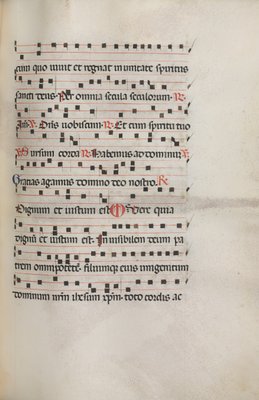 cum quo uiuit et regnat in unitate spiritus
sancti deus. Per omnia secula seculorum. R.
Dn̄s uobiscum. R. Et cum spiritu tuo
Sursum corda R. Habemus ad dominum R.
Gracias agamus domino deo nostro. R.
Dignum et iustum est. Vere quia
dignū et iustum est. Inuisibilem deum pa
trem omnipotētē. filiumque eius unigenitum
dominum nr̄m ih̄esum xp̄m. toto cordis ac